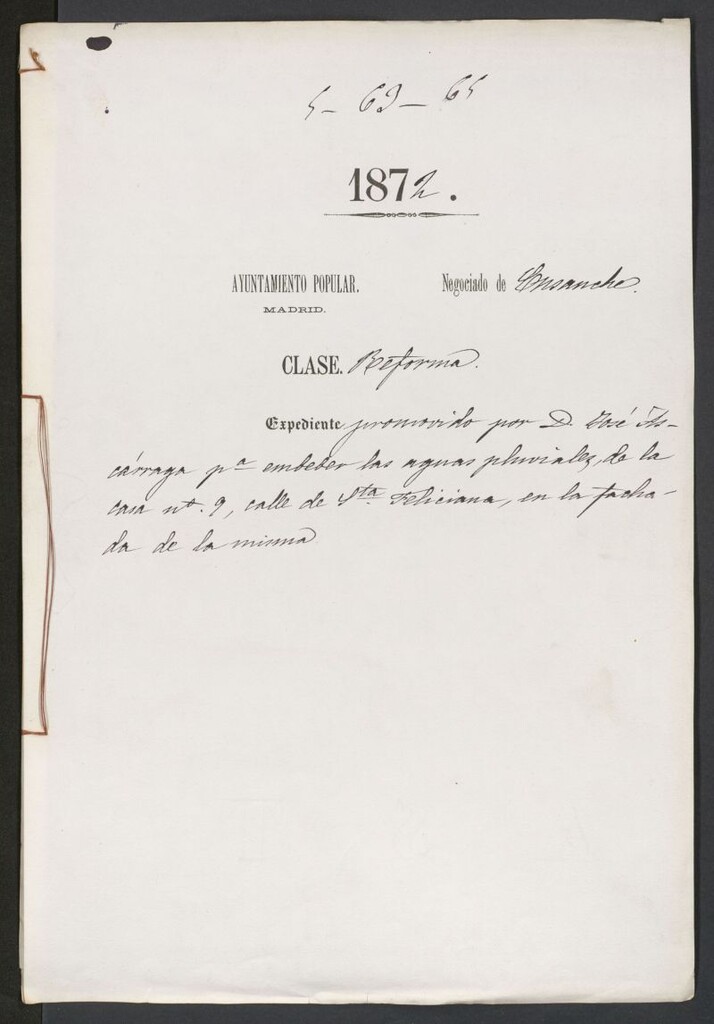 5-69-65
1872.
AYUNTAMIENTO POPULAR. Negociado de Ensanche.
MADRID.
CLASE. Reforma.
Expediente promovido por D. José As-
cárraga pª embeber las aguas pluviales, de la
casa nº. 9, calle de Sta. Feliciana, en la facha-
da de la misma